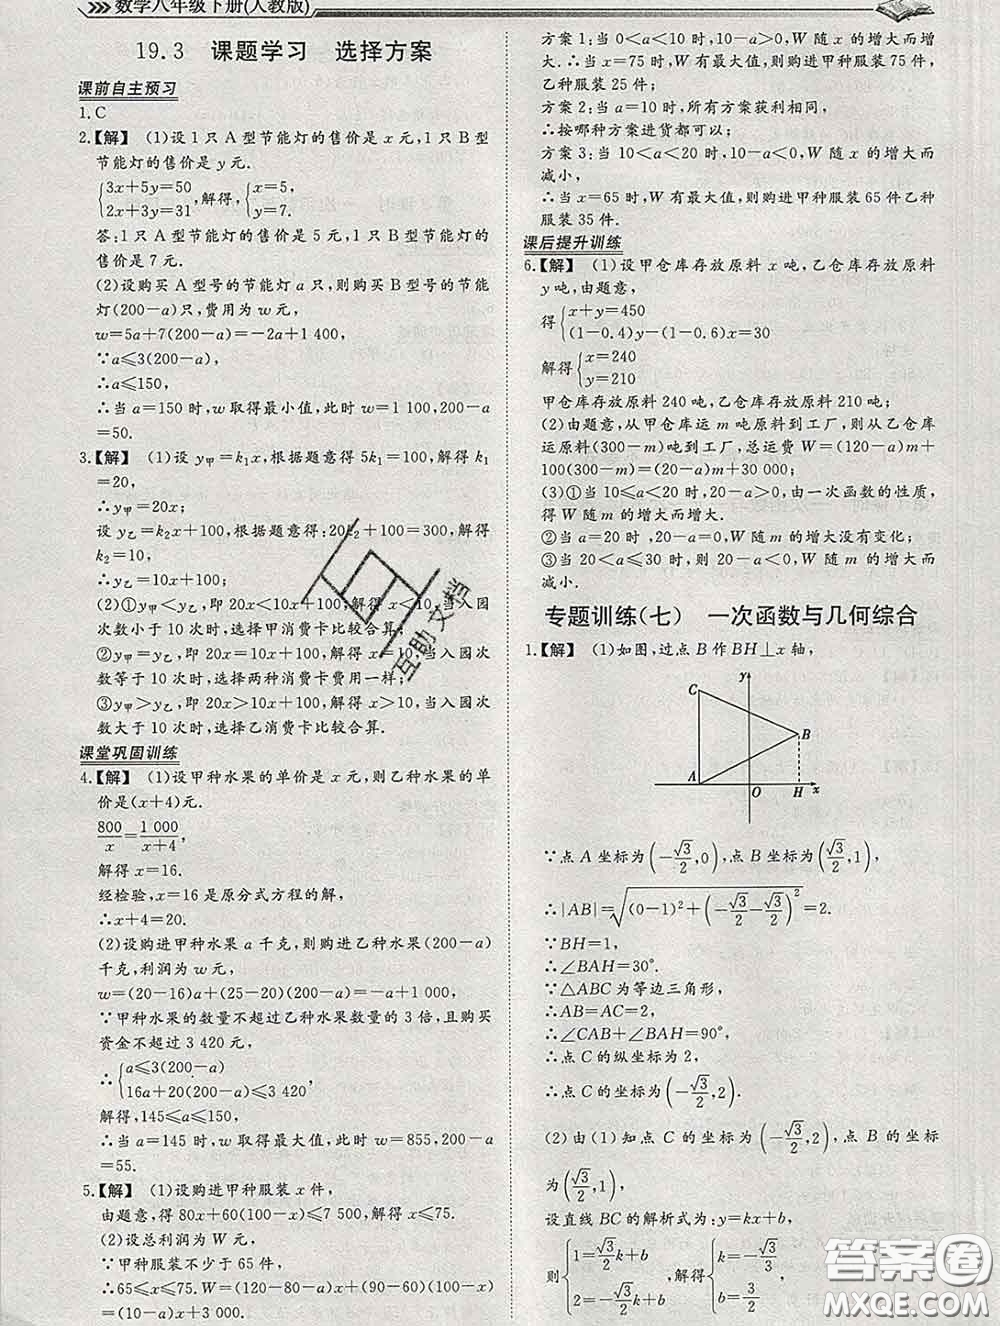 数学八年级下册(人教版)
19.3 课题学习 选择方案
课前自主预习
1.C
2.【解】 (1)设 1 只 A 型节能灯的售价是 x 元,1 只 B 型
节能灯的售价是 y 元.
{3x+5y=50 2x+3y=31,解得,{x=5, y=7.
答:1 只 A 型节能灯的售价是 5 元,1 只 B 型节能灯的
售价是 7 元.
(2)设购买 A 型号的节能灯 a 只,则购买 B 型号的节能
灯(200-a)只,费用为 w 元,
w=5a+7(200-a)=-2a+1 400,
∵a≤3(200-a),
∴a≤150,
∴当 a=150 时,w 取得最小值,此时 w=1 100,200-a
=50.
3.【解】 (1)设 y甲=k₁x,根据题意得 5k₁=100,解得 k₁
=20,
∴y甲=20x;
设 y乙=k₂x+100,根据题意得:20k₂+100=300,解得
k₂=10,
∴y乙=10x+100;
(2)①y甲<y乙,即 20x<10x+100,解得 x<10,当入园
次数小于 10 次时,选择甲消费卡比较合算;
②y甲=y乙,即 20x=10x+100,解得 x=10,当入园次
数等于 10 次时,选择两种消费卡费用一样;
③y甲>y乙,即 20x>10x+100,解得 x>10,当入园次
数大于 10 次时,选择乙消费卡比较合算.
课堂巩固训练
4.【解】 (1)设甲种水果的单价是 x 元,则乙种水果的单
价是(x+4)元.
800/x=1 000/(x+4),
解得 x=16.
经检验,x=16 是原分式方程的解,
∴x+4=20.
(2)设购进甲种水果 a 千克,则购进乙种水果(200-a)
千克,利润为 w 元,
w=(20-16)a+(25-20)(200-a)=-a+1 000,
∵甲种水果的数量不超过乙种水果数量的 3 倍,且购买
资金不超过 3 420 元,
∴{a≤3(200-a) 16a+20(200-a)≤3 420,
解得,145≤a≤150,
∴当 a=145 时,w 取得最大值,此时 w=855,200-a
=55.
5.【解】 (1)设购进甲种服装 x 件,
由题意,得 80x+60(100-x)≤7 500,解得 x≤75.
(2)设总利润为 W 元,
甲种服装不少于 65 件,
∴65≤x≤75. W=(120-80-a)x+(90-60)(100-x)
=(10-a)x+3 000.
方案 1;当 0<a<10 时,10-a>0,W 随 x 的增大而增大,
∴当 x=75 时,W 有最大值,则购进甲种服装 75 件,
乙种服装 25 件;
方案 2;当 a=10 时,所有方案获利相同,
∴按哪种方案进货都可以;
方案 3;当 10<a<20 时,10-a<0,W 随 x 的增大而
减小,
∴当 x=65 时,W 有最大值,则购进甲种服装 65 件乙种
服装 35 件.
课后提升训练
6.【解】 (1)设甲仓库存放原料 x 吨,乙仓库存放原料
y 吨,由题意,
得{x+y=450 (1-0.4)y-(1-0.6)x=30
解得{x=240 y=210
甲仓库存放原料 240 吨,乙仓库存放原料 210 吨;
(2)由题意,从甲仓库运 m 吨原料到工厂,则从乙仓库
运原料(300-m)吨到工厂,总运费 W=(120-a)m+
100(300-m)=(20-a)m+30 000;
(3)①当 10≤a<20 时,20-a>0,由一次函数的性质,
得 W 随 m 的增大而增大.
②当 a=20 时,20-a=0,W 随 m 的增大没有变化;
③当 20<a≤30 时,则 20-a<0,W 随 m 的增大而
减小.
专题训练(七) 一次函数与几何综合
1.【解】 (1)如图,过点 B 作 BH⊥x 轴,
y
C
B
A
O
H
x
∵点 A 坐标为(-√3/2,0),点 B 坐标为(√3/2,1),
∴|AB|=√((0-1)²+(-√3/2-√3/2)²)=2.
∵BH=1,
∴∠BAH=30°.
∵△ABC 为等边三角形,
∴AB=AC=2,
∴∠CAB+∠BAH=90°,
∴点 C 的纵坐标为 2,
∴点 C 的坐标为(-√3/2,2).
(2)由(1)知点 C 的坐标为(-√3/2,2),点 B 的坐标
为(√3/2,1),
设直线 BC 的解析式为:y=kx+b,
则{1=√3/2k+b 2=-√3/2k+b,解得{k=-√3/3 b=3/2
互助文档
答案圈
MXQE.COM